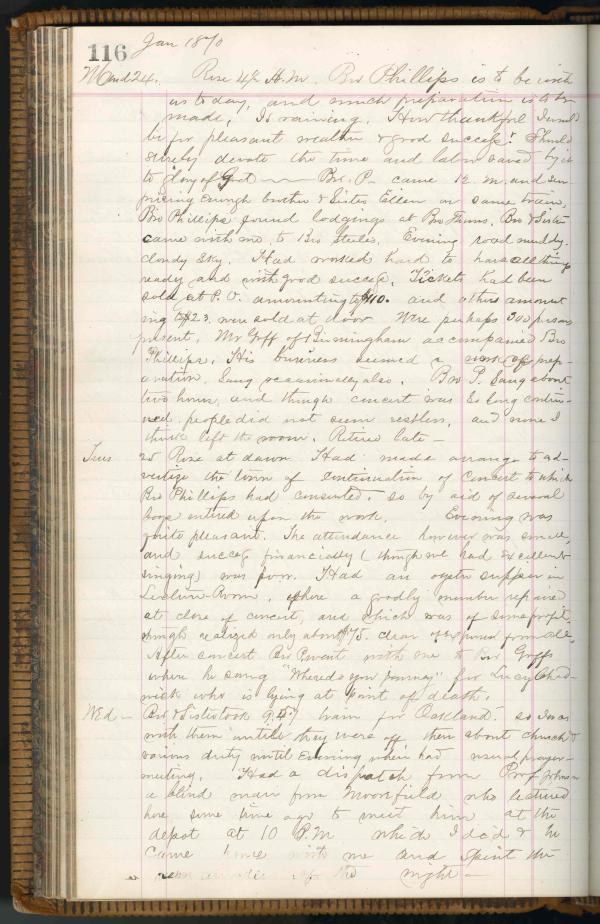 116 Jan 1870
Mond 24. Rose 4½ A.M. Bro Phillips is to be with
us to day, and much preparation is to be
made, Is raining. How thankful I would
be for pleasant weather & good success! Should
surely devote the time and labor saved by it
to glory of God — Bro. P— came 12 M. and sur
prising enough brother & Sister Ellen on same train,
Bro Phillips found lodgings at Bro Bro & Sister
came with me to Bro Steeles. Evening road muddy.
cloudy sky. Had worked hard to have all things
ready and with good success, Tickets had been
sold at P.O. amounting to $110. and others amount
ing to $23. were sold at door Were perhaps 300 persons
present, Mr Goff of Birmingham accompanied Bro
Phillips. His business seemed a work of prep-
aration. Sang occasionally also. Bro P. Sang about
two hours, and though concert was so long contin-
ued people did not seem restless, and none I
think left the room. Retired late —
Tues 25 Rose at dawn Had made arrange- to ad-
vertize the town of continuation of Concert to which
Bro Phillips had consented. so by aid of several
boys entered upon the work. Evening was
quite pleasant. The attendance however was small,
and success financially (though we had excellent
singing) was poor. Had an oyster supper in
Lecture-Room, where a goodly number repaired
at close of concert, and which was of some profit,
though realized only about $75. clear of expenses from all,
After concert Bro P. went with me to Bro Goffs
where he sang "Where do you Journey" for Lucy Chad-
wick who is lying at point of death.
Wed — Bro & Sister took train for Oakland. so I was
with them untill they were off then about church &
various duty until Evening when had usual prayer-
meeting. Had a dispatch from Prof Johnson
a blind man from Moorfield who lectured
here some time ago to meet him at the
depot at 10 P.M which I did & he
came home with me and spent the
remainder of the night —